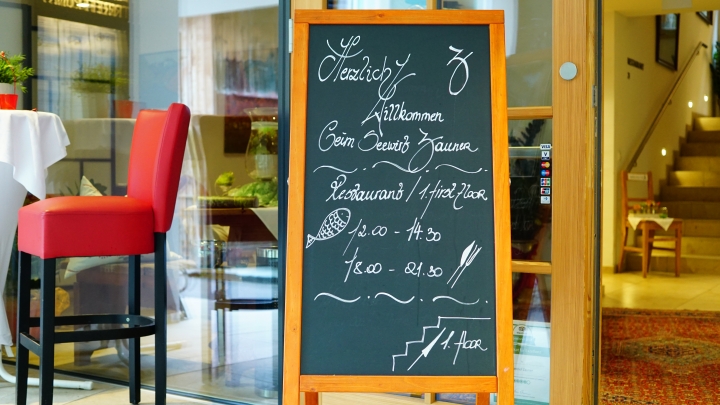 Herzlich Z
Willkommen
beim Seewirt Zauner
Restaurant / 1. first Floor
12.00 - 14.30
18.00 - 21.30
1. floor